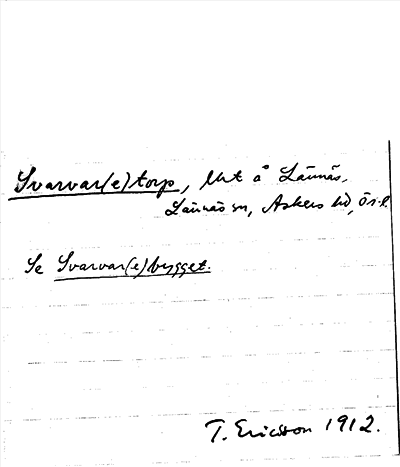 Svarvar(e)torp, lht å Lännäs,
Lännäs sn, Askers hd, Ör.l.
Se Svarvar(e)bygget.
T. Ericsson 1912.